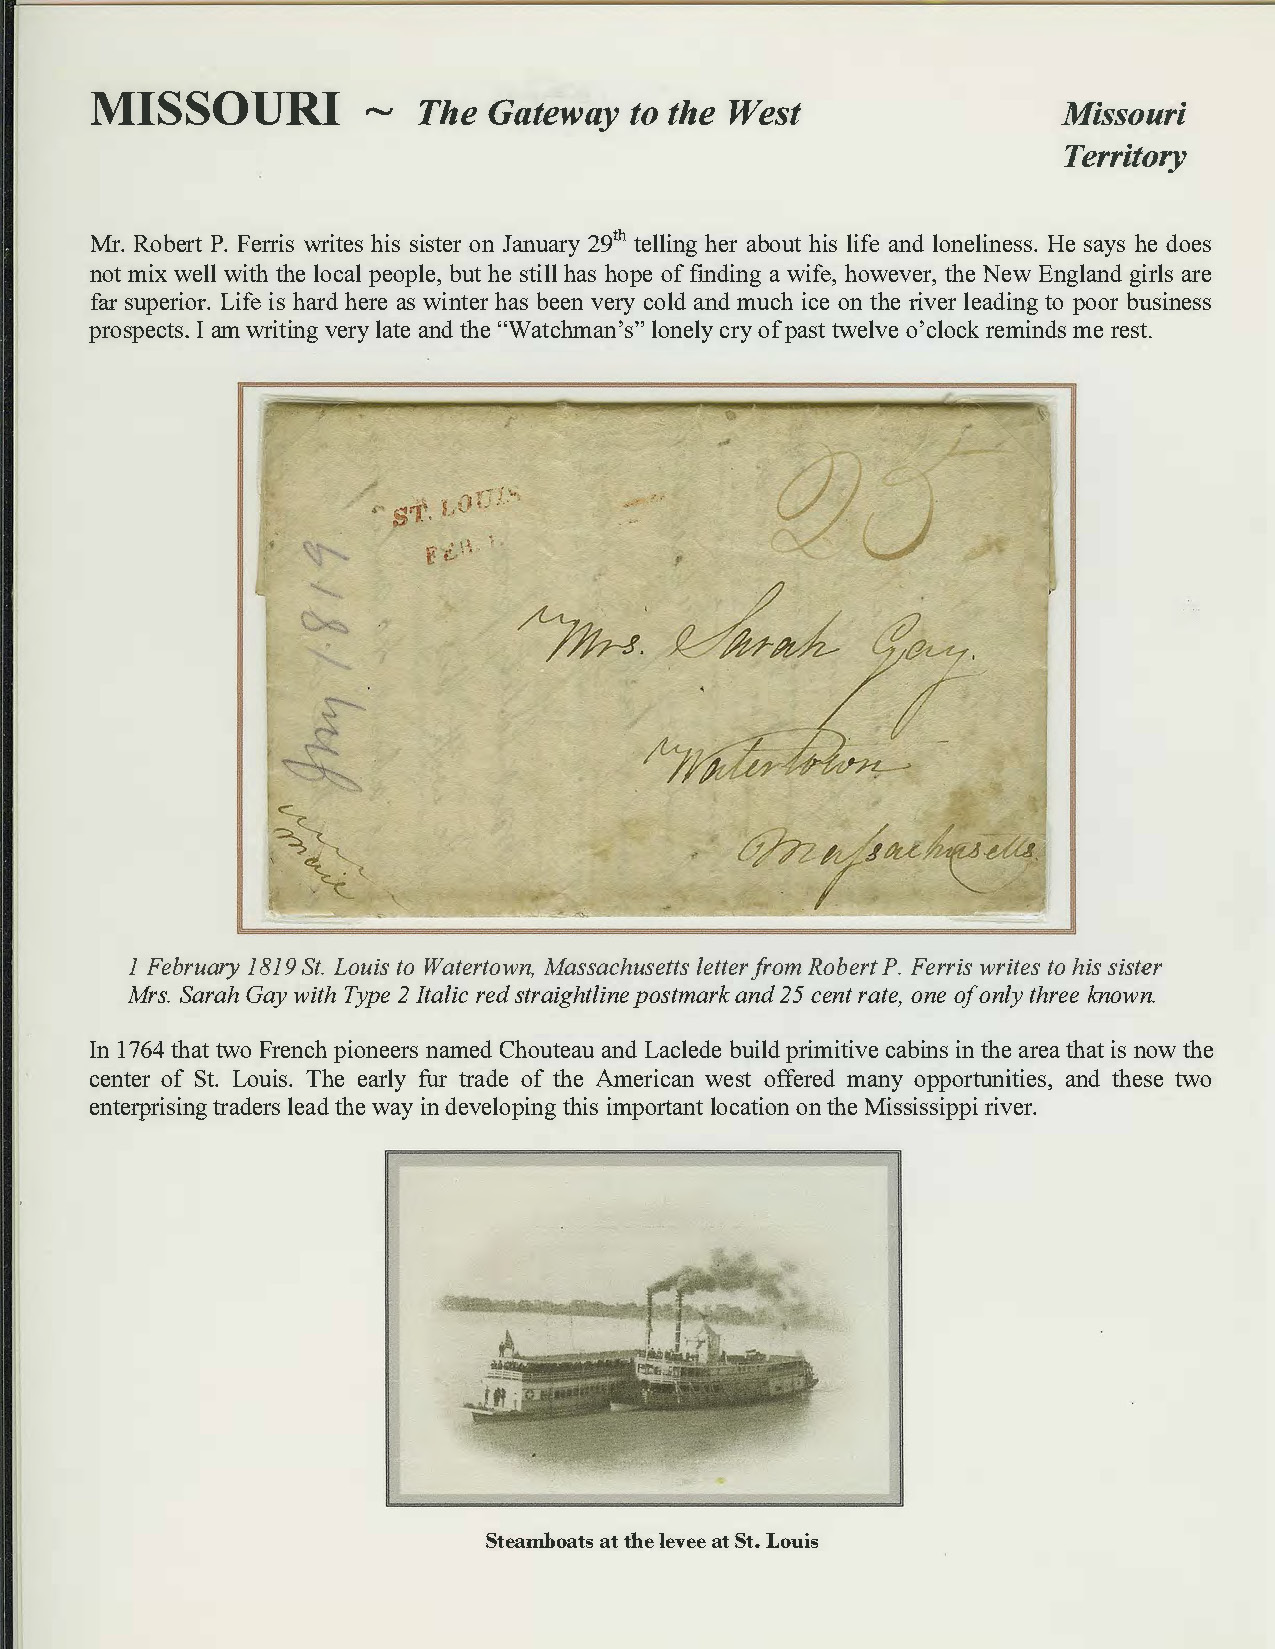 MISSOURI ~ The Gateway to the West
Missouri
Territory
Mr. Robert P. Ferris writes his sister on January 29th telling her about his life and loneliness. He says he does
not mix well with the local people, but he still has hope of finding a wife, however, the New England girls are
far superior. Life is hard here as winter has been very cold and much ice on the river leading to poor business
prospects. I am writing very late and the “Watchman’s” lonely cry of past twelve o’clock reminds me rest.
ST. LOUIS
FEB. 1.
25
Mrs. Sarah Gay.
Watertown
Massachusetts.
1819
1 February 1819 St. Louis to Watertown, Massachusetts letter from Robert P. Ferris writes to his sister
Mrs. Sarah Gay with Type 2 Italic red straightline postmark and 25 cent rate, one of only three known.
In 1764 that two French pioneers named Chouteau and Laclede build primitive cabins in the area that is now the
center of St. Louis. The early fur trade of the American west offered many opportunities, and these two
enterprising traders lead the way in developing this important location on the Mississippi river.
Steamboats at the levee at St. Louis